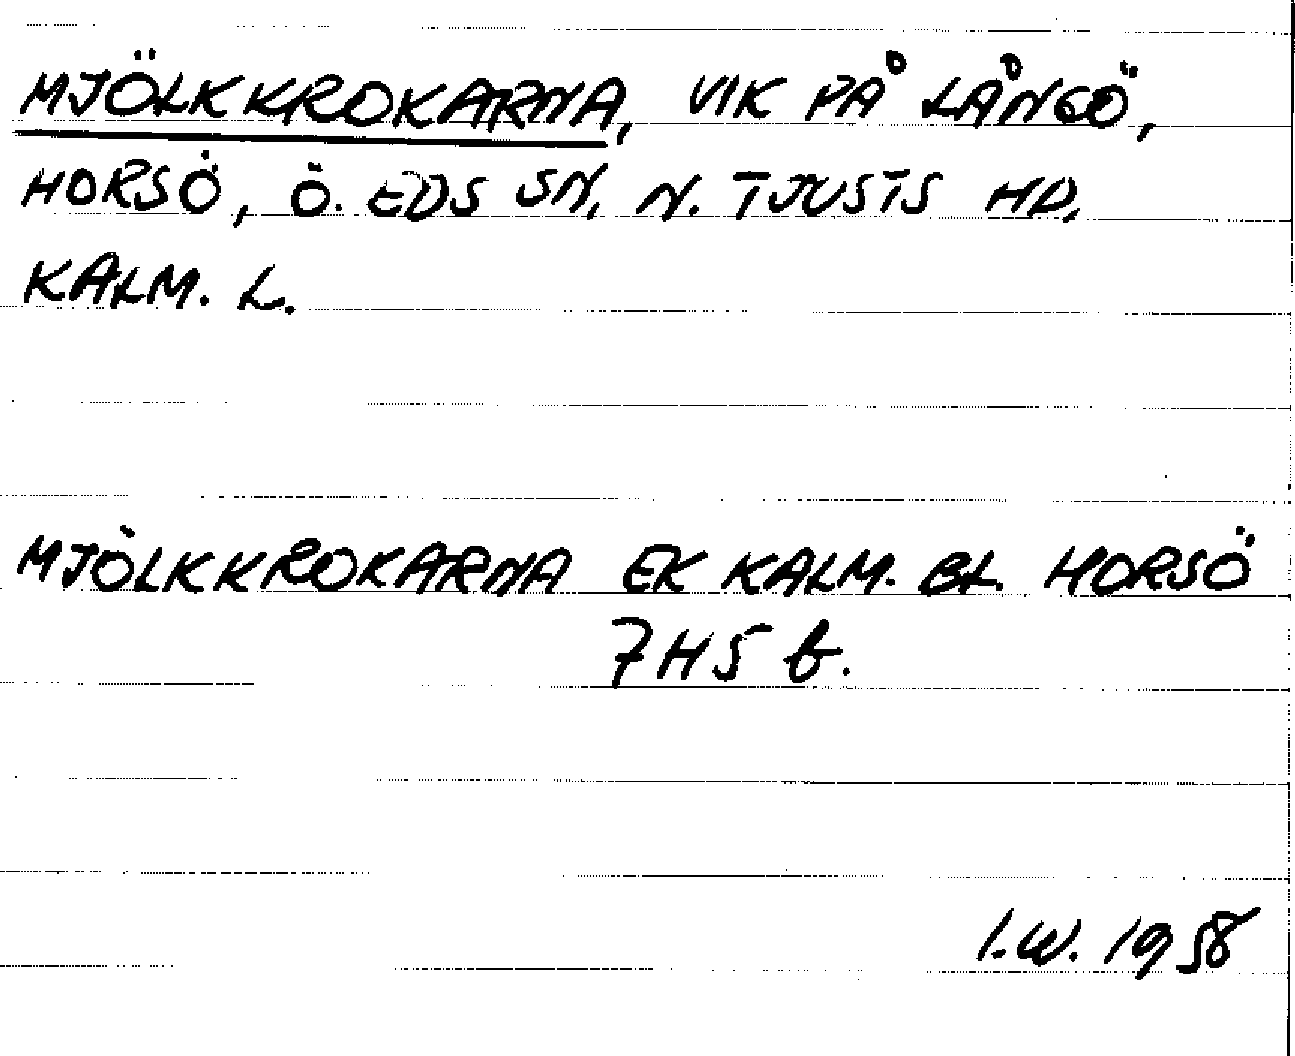 MJÖLKKROKARNA, VIK PÅ LÅNGÖ,
HORSÖ, Ö. EDS SN, N. TJUSTS HD,
KALM. L.
MJÖLKKROKARNA EK KALM. BL. HORSÖ
7H5 b.
I.W. 1958